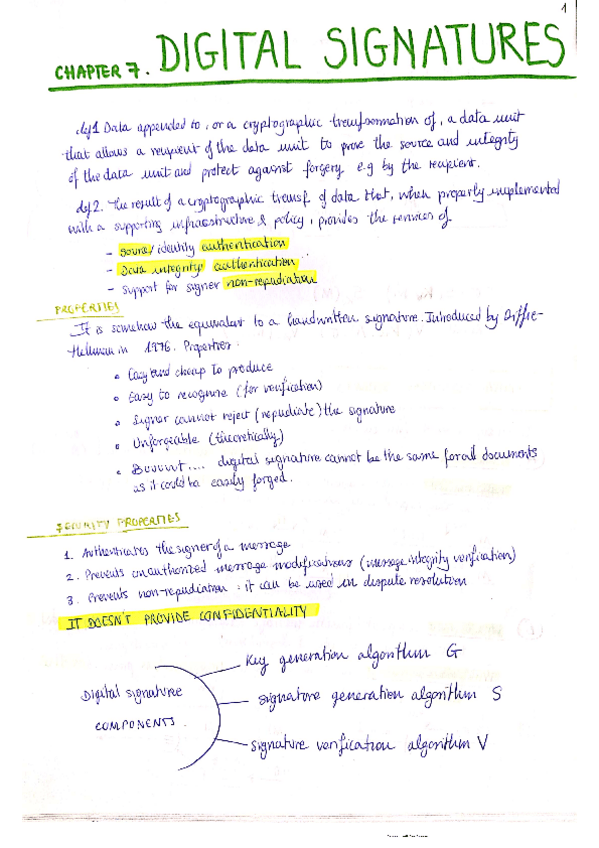 1
CHAPTER 7. DIGITAL SIGNATURES
def1 Data appended to, or a cryptographic transformation of, a data unit
that allows a recipient of the data unit to prove the source and integrity
of the data unit and protect against forgery e.g by the recipient.
def2. The result of a cryptographic transf. of data that, when properly implemented
with a supporting infraestructure & policy, provides the services of
- source/identity authentication
- Data integrity authentication
- support for signer non-repudiation
PROPERTIES
It is somehow the equivalent to a handwritten signature. Introduced by Diffie-
Hellman in 1976. Properties:
• Easy and cheap to produce
• Easy to recognise (for verification)
• Signer cannot reject (repudiate) the signature
• Unforgeable (theoretically)
• Buuuut.... digital signature cannot be the same for all documents
as it could be easily forged.
SECURITY PROPERTIES
1. Authenticates the signer of a message
2. Prevents unauthorized message modifications (message integrity verification)
3. Prevents non-repudiation : it can be used in dispute resolution
IT DOESN'T PROVIDE CONFIDENTIALITY
Key generation algorithm G
Digital signature
COMPONENTS.
signature generation algorithm S
signature verification algorithm V